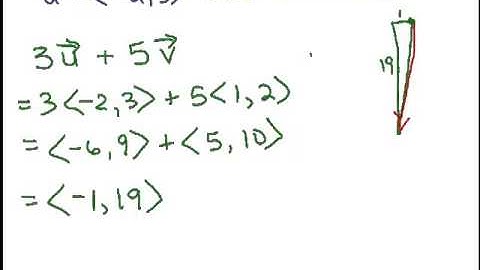 3u⃗ + 5v⃗
= 3⟨-2,3⟩ + 5⟨1,2⟩
= ⟨-6,9⟩ + ⟨5,10⟩
= ⟨-1,19⟩
1
19